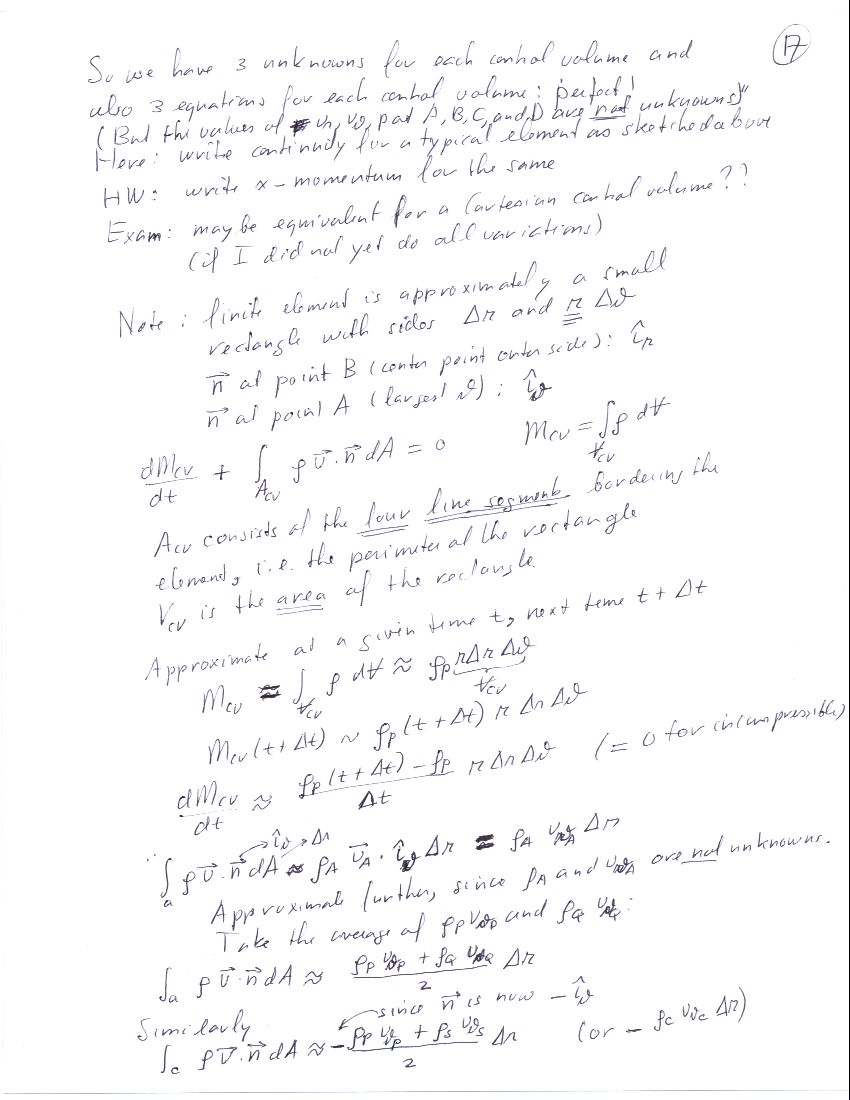 17
So we have 3 unknowns for each control volume and
also 3 equations for each control volume: perfect!
(But the values of vr, vϑ, p at A, B, C, and D are not unknowns)"
Here: write continuity for a typical element as sketched above
HW: write x-momentum for the same
Exam: may be equivalent for a Cartesian control volume??
(if I did not yet do all variations)
Note: finite element is approximately a small
rectangle with sides Δr and r Δϑ
n⃗ at point B (center point outer side): î_r
n⃗ at point A (largest ϑ): î_ϑ
dM_CV/dt + ∫_{A_CV} ρ v⃗·n⃗ dA = 0    M_CV = ∫_{V_CV} ρ dV
A_CV consists of the four line segments bordering the
element, i.e. the perimeter of the rectangle
V_CV is the area of the rectangle
Approximate at a given time t, next time t + Δt
M_CV = ∫_{V_CV} ρ dV ≈ ρ_P rΔrΔϑ
V_CV
M_CV(t+Δt) ~ ρ_P(t+Δt) r Δr Δϑ
dM_CV/dt ≈ (ρ_P(t+Δt) - ρ_P)/Δt r Δr Δϑ    (= 0 for incompressible)
→ î_ϑ → Δr
∫_a ρ v⃗·n⃗ dA ≈ ρ_A v⃗_A · î_ϑ Δr = ρ_A v_ϑA Δr
Approximate further, since ρ_A and v_ϑA are not unknowns.
Take the average of ρ_P v_ϑP and ρ_Q v_ϑQ:
∫_a ρ v⃗·n⃗ dA ≈ (ρ_P v_ϑP + ρ_Q v_ϑQ)/2 Δr
Similarly since n⃗ is now - î_ϑ
∫_c ρ v⃗·n⃗ dA ≈ - (ρ_P v_ϑP + ρ_S v_ϑS)/2 Δr    (or - ρ_C v_ϑC Δr)